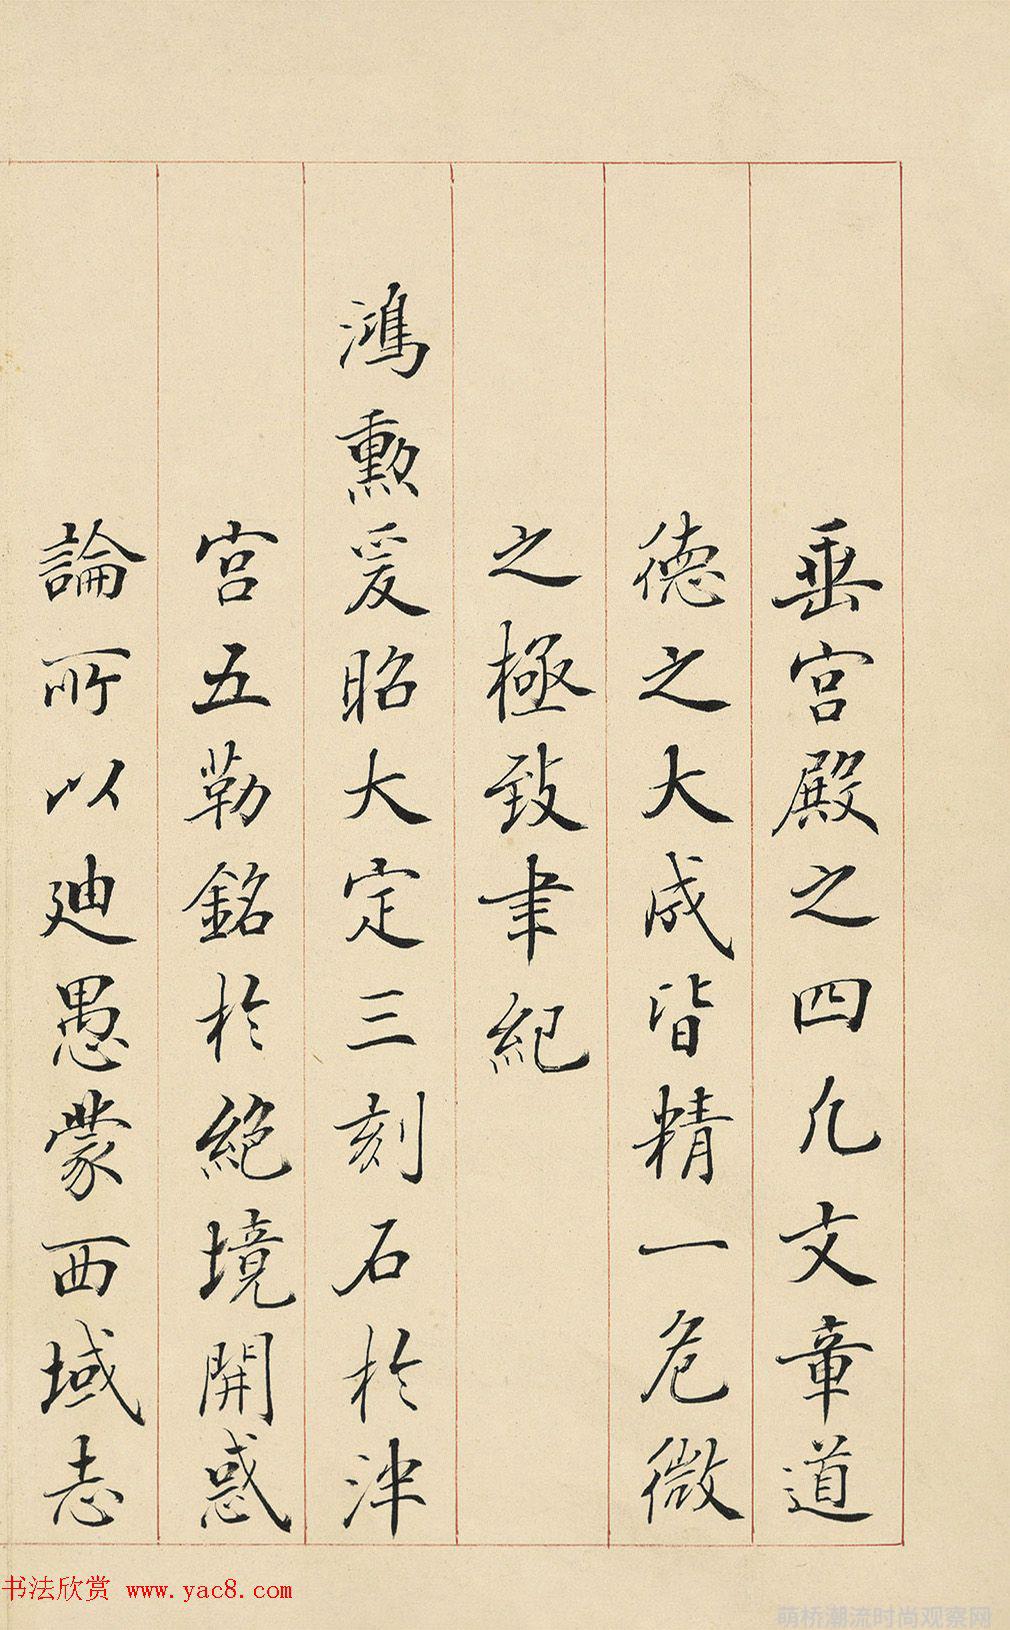 垂宫殿之四凢文章道
德之大成皆精一危微
之極致聿紀
鴻勲爰昭大定三刻石於泮
宫五勒銘於絶境開惑
論所以廸愚蒙西域志
书法欣赏 www.yac8.com
萌桥潮流时尚观察网